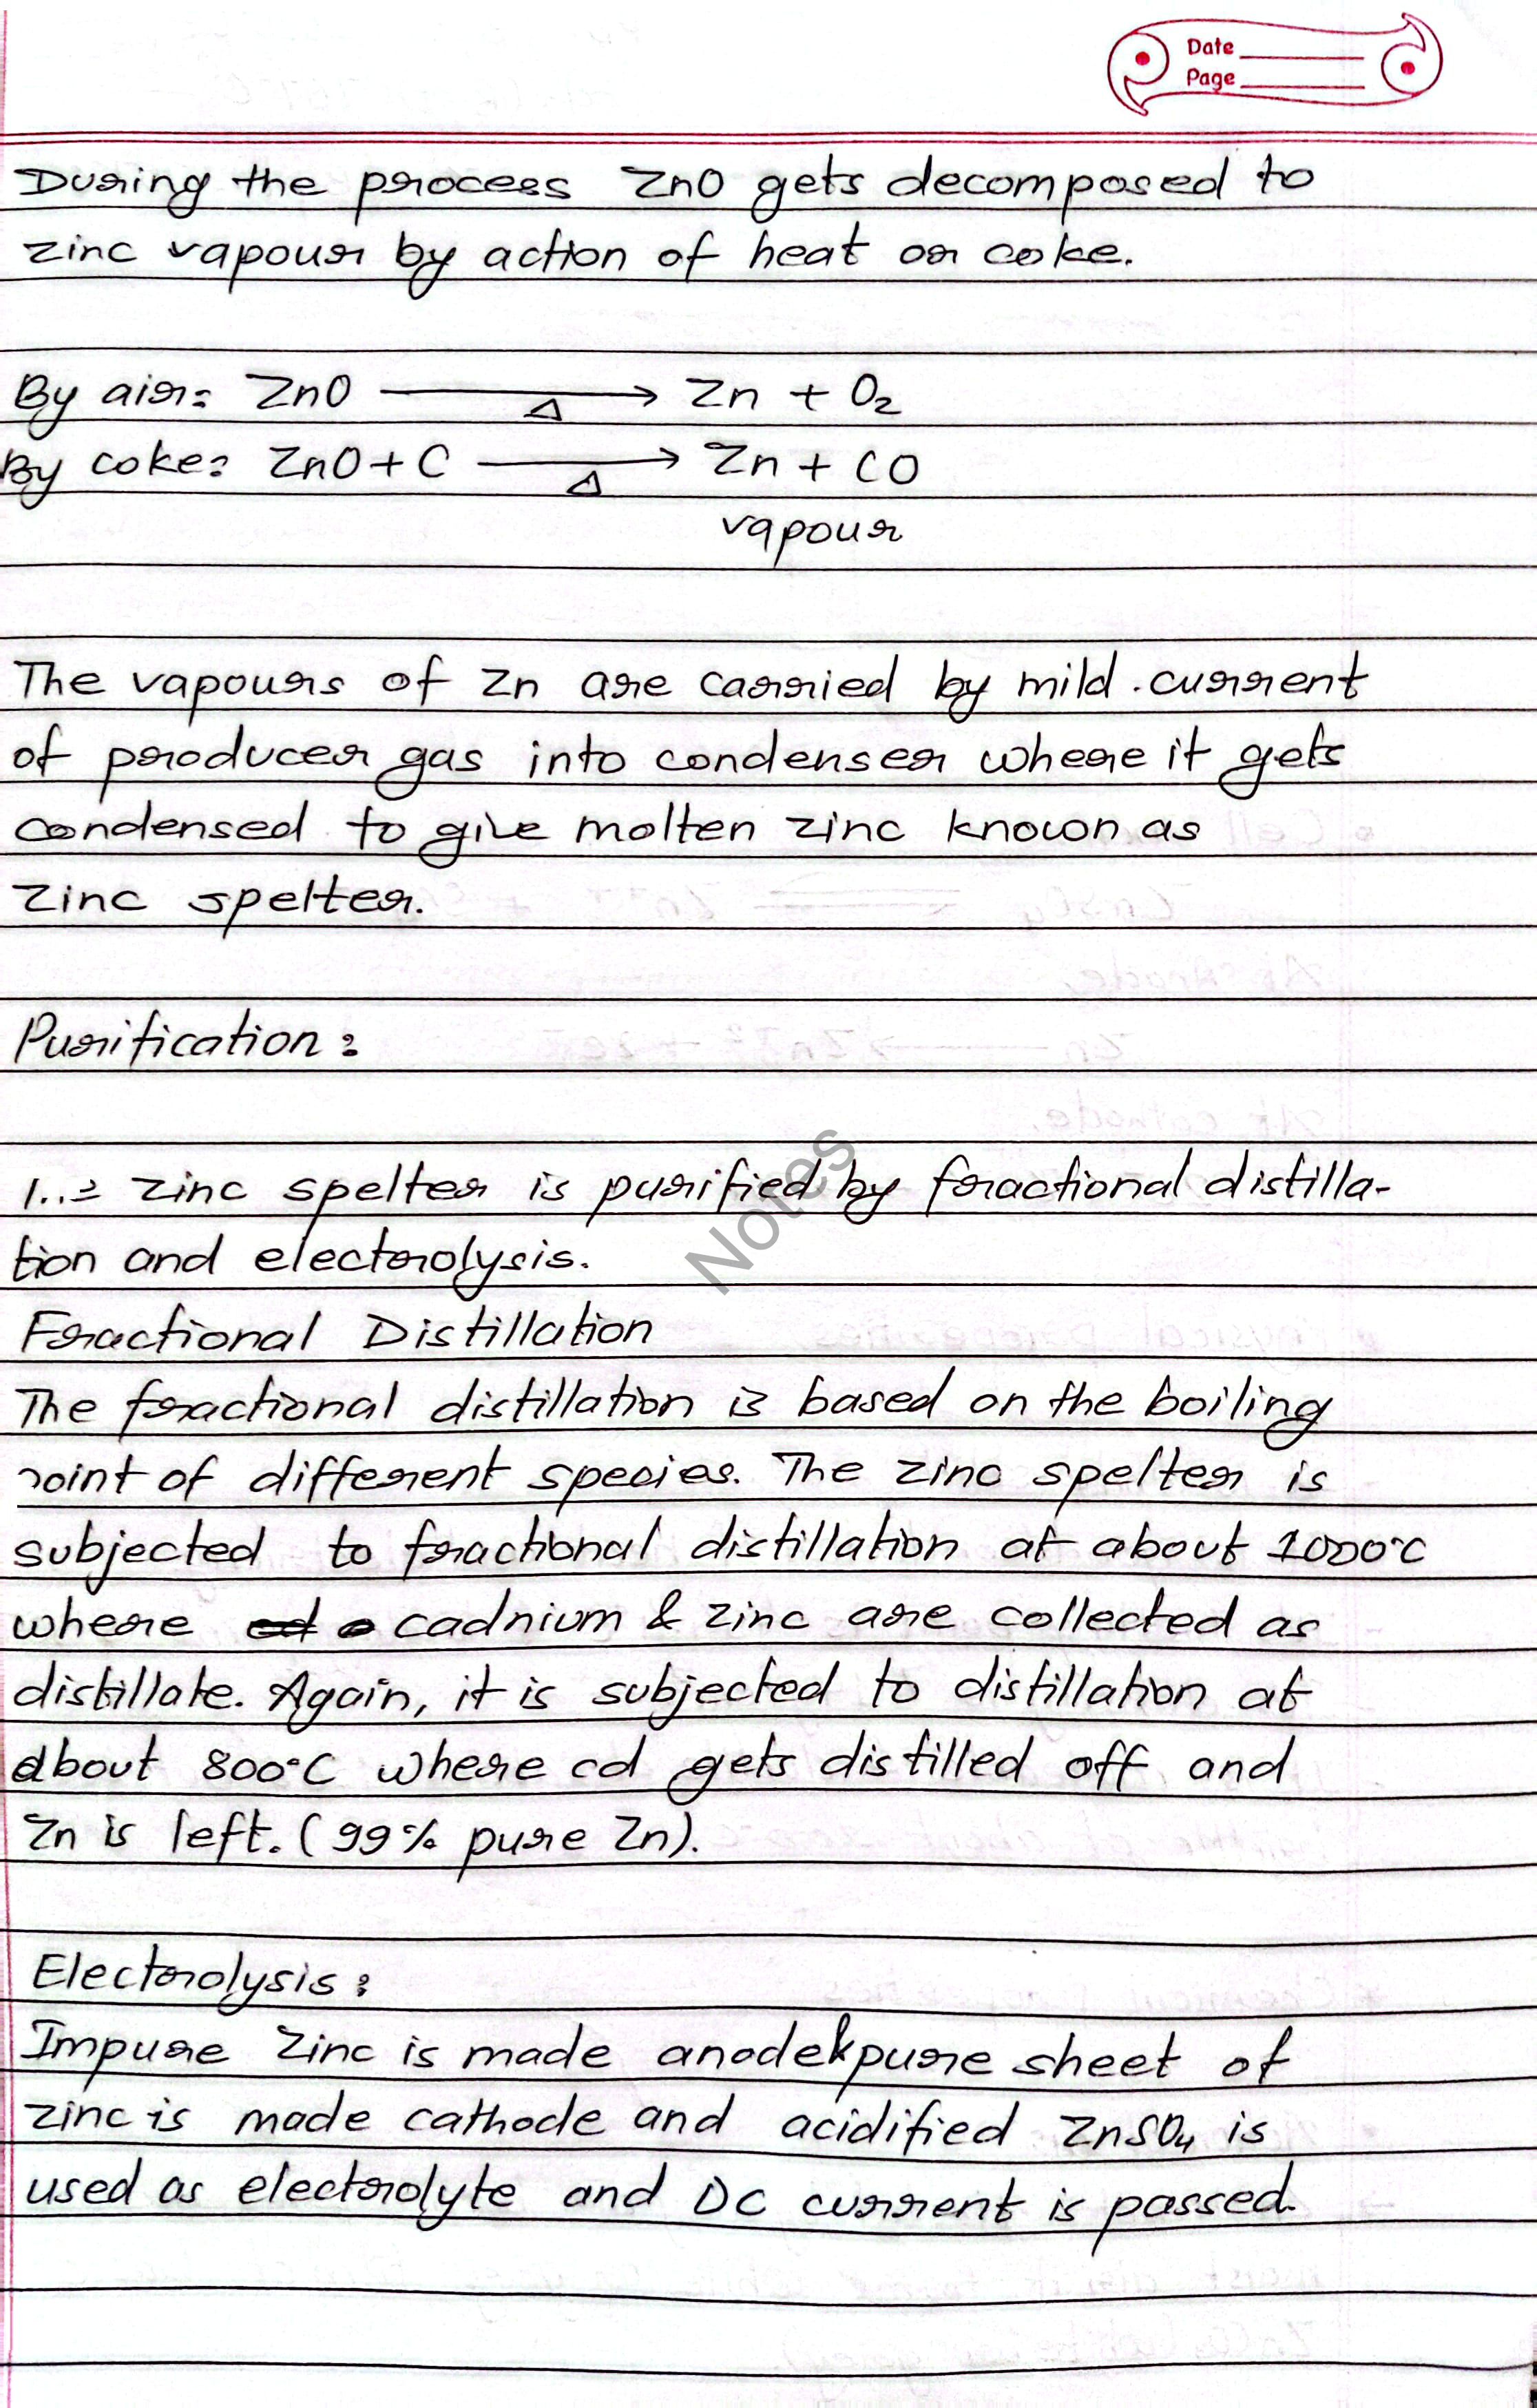 Date
Page
During the process ZnO gets decomposed to
zinc vapour by action of heat or coke.
By air: ZnO ⟶ Zn + O₂
Δ
By coke: ZnO + C ⟶ Zn + CO
Δ
vapour
The vapours of Zn are carried by mild current
of producer gas into condenser where it gets
condensed to give molten zinc known as
zinc spelter.
Purification:
1..: zinc spelter is purified by fractional distilla-
tion and electrolysis.
Notes
Fractional Distillation
The fractional distillation is based on the boiling
point of different species. The zinc spelter is
subjected to fractional distillation at about 1000°C
where cadnium & zinc are collected as
distillate. Again, it is subjected to distillation at
about 800°C where cd gets distilled off and
Zn is left. (99% pure Zn).
Electrolysis:
Impure Zinc is made anode & pure sheet of
zinc is made cathode and acidified ZnSO₄ is
used as electrolyte and DC current is passed.